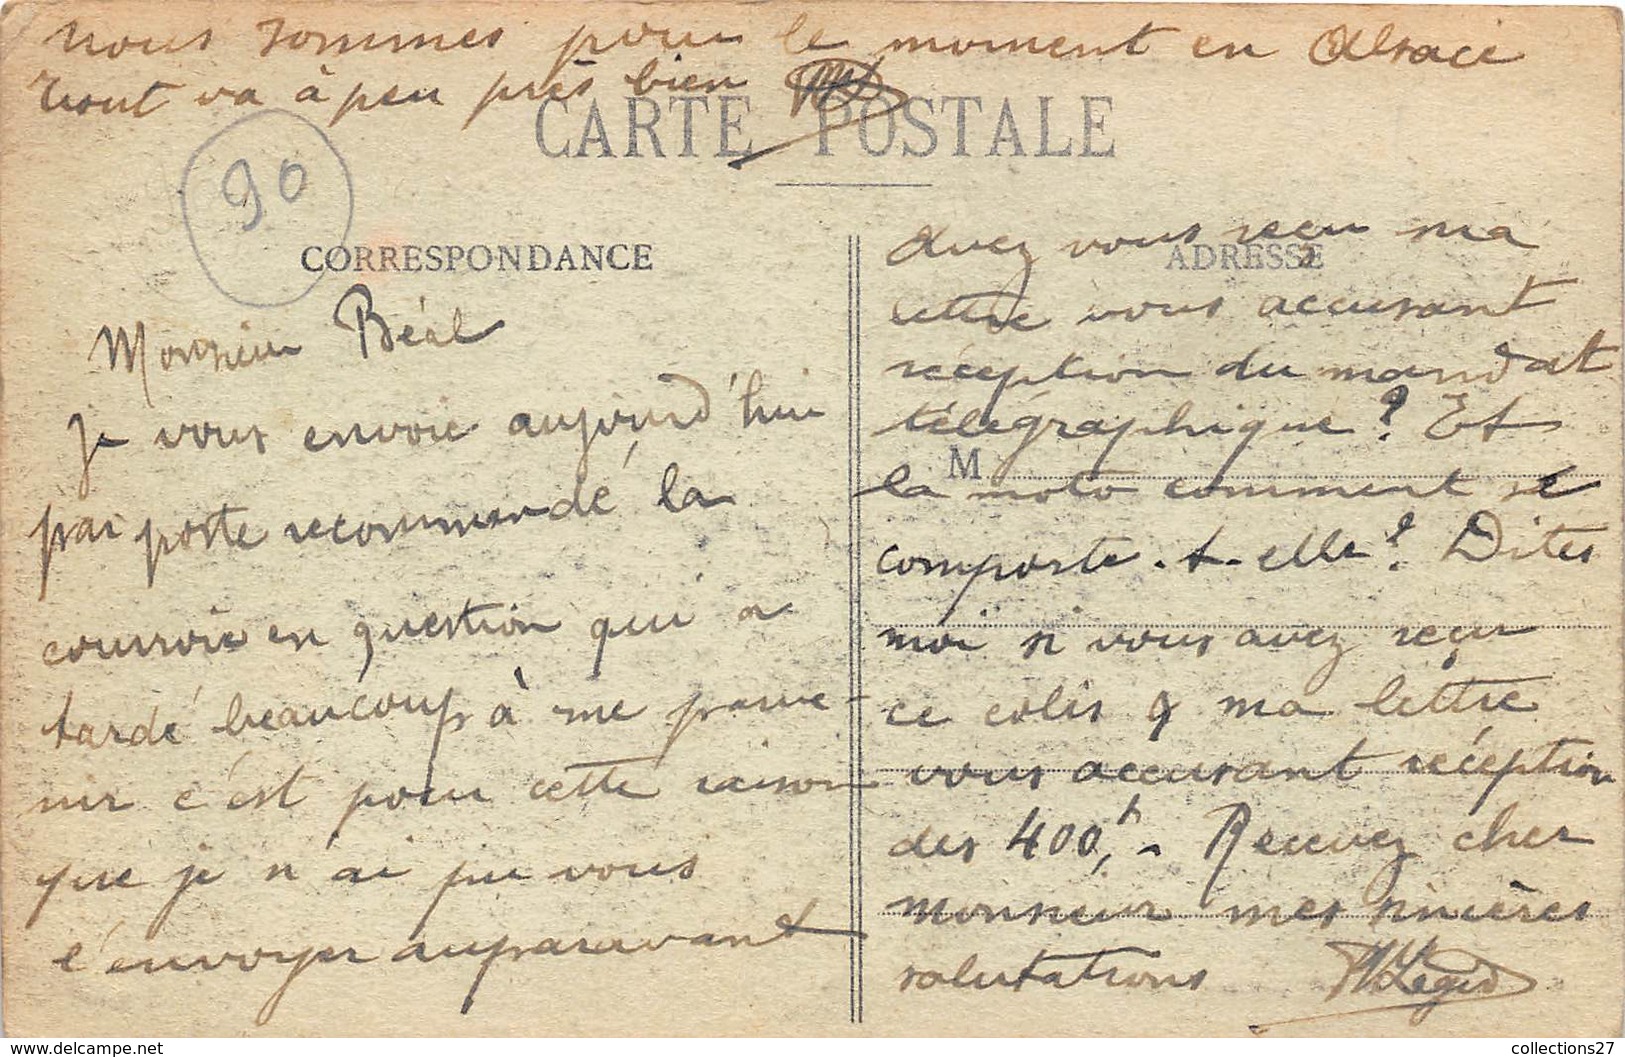 nous sommes pour le moment en Alsace
tout va à peu près bien
CARTE POSTALE
90
CORRESPONDANCE
Monsieur Béal
Je vous envoie aujourd'hui
par poste recommandé la
courroie en question qui a
tardé beaucoup à me parve-
nir c'est pour cette raison
que je n'ai pu vous
l'envoyer auparavant
ADRESSE
Avez vous reçu ma
lettre vous accusant
réception du mandat
télégraphique? Et
M
la moto comment se
comporte-t-elle? Dites
moi si vous avez reçu
ce colis & ma lettre
vous accusant réception
des 400f,- Recevez cher
monsieur mes sincères
salutations
collections27